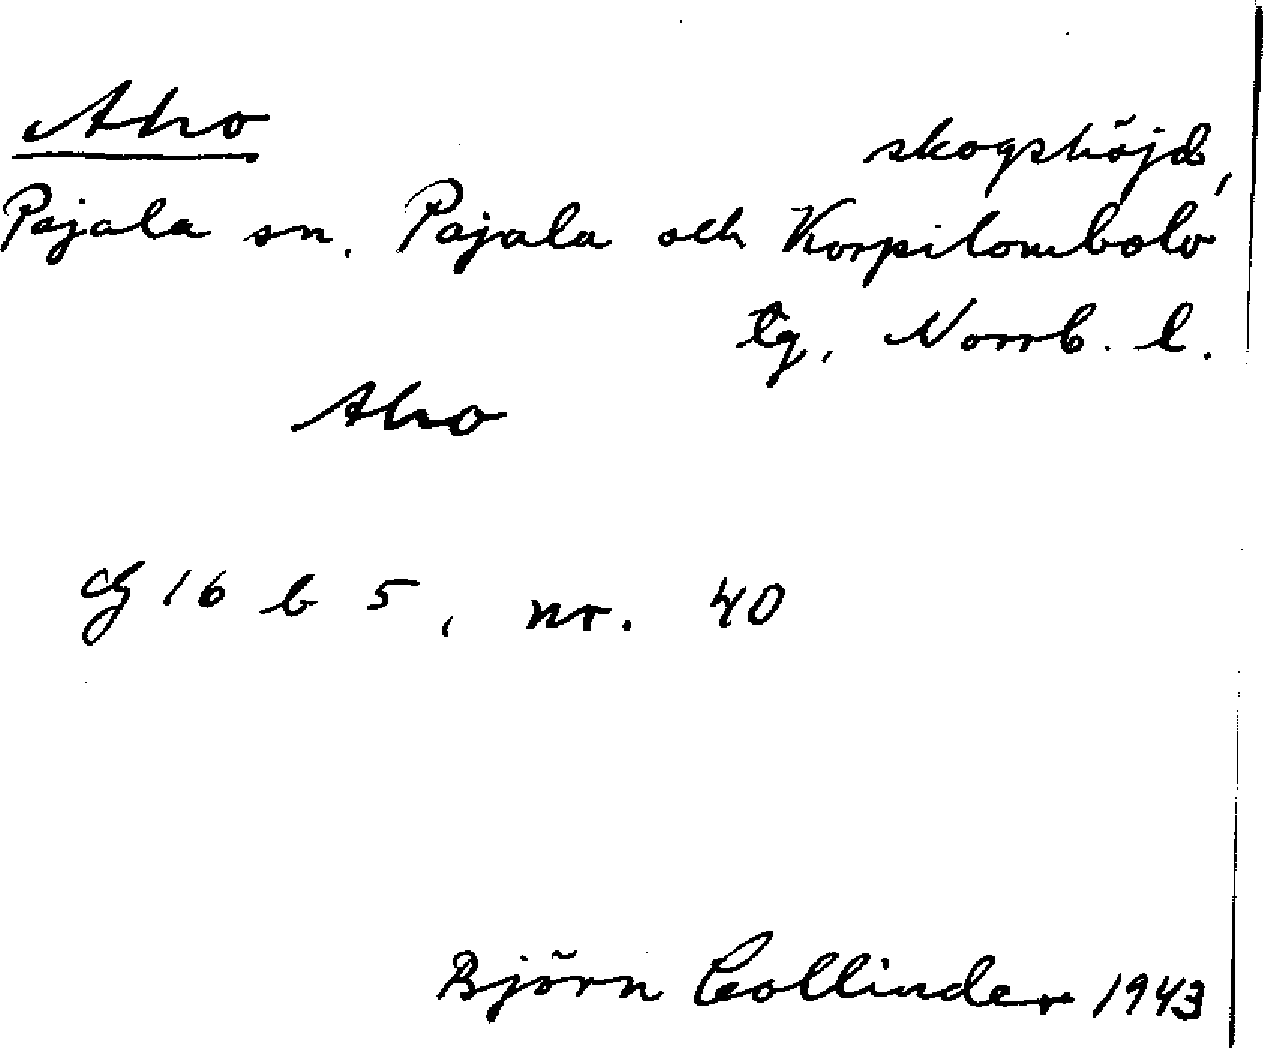 Aho
skogshöjd,
Pajala sn. Pajala och Korpilombolo
tg, Norrb. l.
Aho
16 b 5, nr. 40
Björn Collinder 1943